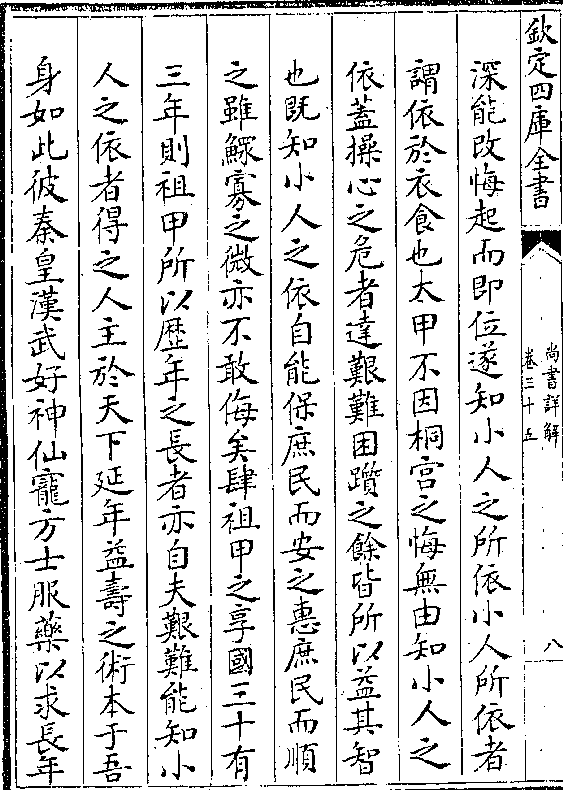 欽定四庫全書
尚書詳解
卷三十五
八
深能改悔起而即位遂知小人之所依小人所依者
謂依於衣食也太甲不因桐宫之悔無由知小人之
依蓋操心之危者達艱難困躓之餘皆所以益其智
也既知小人之依自能保庶民而安之惠庶民而順
之雖鰥寡之微亦不敢侮矣肆祖甲之享國三十有
三年則祖甲所以歴年之長者亦自夫艱難能知小
人之依者得之人主於天下延年益壽之術本于吾
身如此彼秦皇漢武好神仙寵方士服藥以求長年